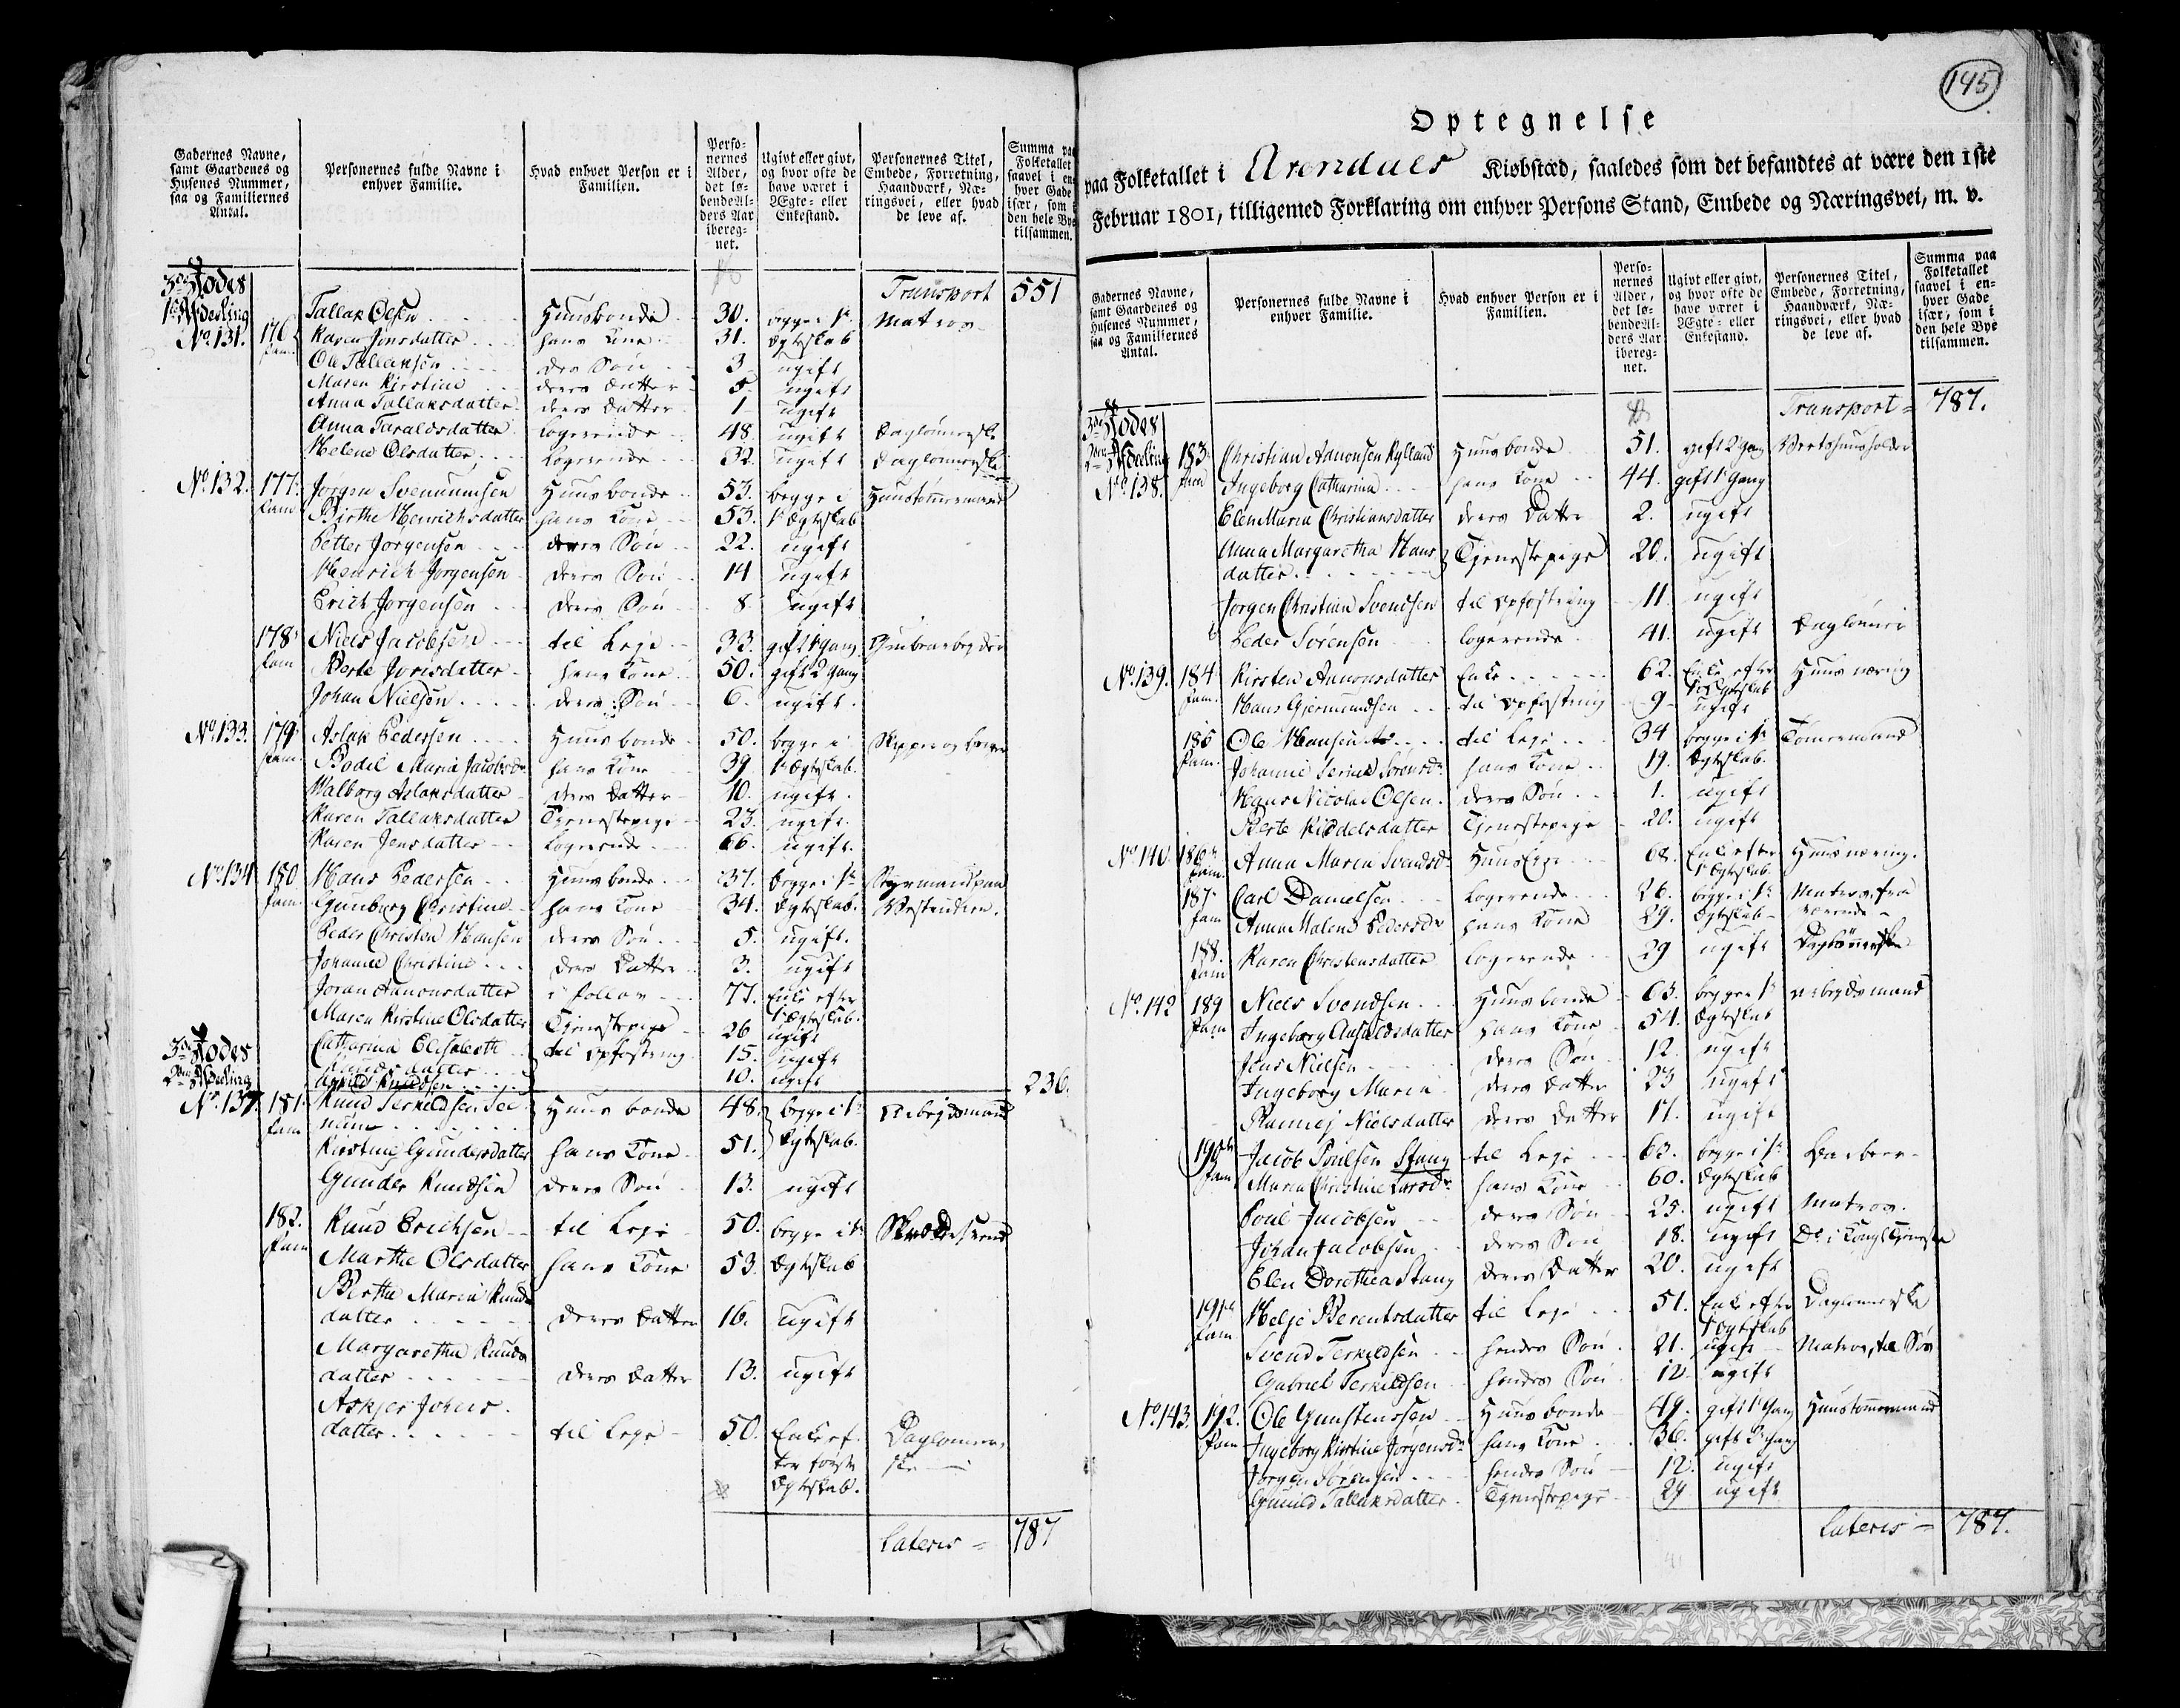 Gadernes Navne, samt Gaardenes og Husenes Nummer, saa og Familiernes Antal.
Personernes fulde Navne i enhver Familie.
Hvad enhver Person er i Familien.
Personernes Alder, det løbende Alders Aar iberegnet.
Ugivt eller givt, og hvor ofte de have været i Ægte- eller Enkestand.
Personernes Titel, Embede, Forretning, Haandværk, Næringsvei, eller hvad de leve af.
Summa paa Folketallet saavel i enhver Gade især, som i den hele Bye tilsammen.
3die Rodes
1ste Afdeeling
Transport 551
No. 131. 176 fam. Tallak Olsen Huusbonde 30. begge i 1te Matros
Karen Jonsdatter hans Kone 31. Ægteskab
Ole Tallaksen deres Søn 3 ugift
Maren Kirstine deres Datter 5 ugift
Anna Tallaksdatter deres Datter 1 ugift
Anna Taraldsdatter Logerende 48. ugift Daglønnerske
Helene Olsdatter Logerende 32. ugift Daglønnerske
No. 132. 177. fam Jørgen Svenuumsen Huusbonde 53. begge i Huustømmermand
Birthe Henrichsdatter hans Kone 53. 1te Ægteskab
Petter Jørgensen deres Søn 22. ugift
Henrich Jørgensen deres Søn 14 ugift
Erich Jørgensen deres Søn 8 ugift
178 fam Niels Jacobsen til Leje 33. gift 1 Gang
Berte Jorisdatter hans Kone 50. gift 2 Gang
Johan Nielsen deres Søn 6. ugift.
No. 133. 179 fam. Aslak Pedersen Huusbonde 50. begge i Skipper og
Bodil Maria Jacobsdr. hans Kone 39 1te Ægteskab.
Walborg Aslaksdatter deres Datter 10. ugift.
Karen Tallaksdatter Tjenestepige 23. ugift.
Karen Jensdatter Logerende 66. ugift.
No. 134 180 fam. Hans Pedersen Huusbonde 37. begge i 1te Styrmand paa
Gunborg Christine hans Kone 34. Ægteskab. Westindien.
Peder Christen Hansen deres Søn 5. ugift.
Johanne Christine deres Datter 3. ugift
Joran Aanonsdatter i følløv 77. Enke efter 1te Ægteskab.
Maren Kirstine Olsdatter Tjenestepige 26 ugift
Catharina Elisabeth Knudsdatter til Opfostring 15. ugift
Knudsen 10. ugift
236.
3die Rodes
2den Afdeeling
No. 137. 181. fam Knud Terkildsen Huusbonde 48. begge i 1te Arbejdsmand
Kirstine Gundersdatter hans Kone 51. Ægteskab.
Gunder Knudsen deres Søn 13. ugift
182. fam Knud Erichsen til Leje 50. begge i 1te Skræddersvend
Marthe Olsdatter hans Kone 53. Ægteskab
Berthe Maria Knuds
datter deres Datter 16. ugift
Margaretha Knuds
datter deres Datter 13. ugift
Askjer Johns
datter til Leje 50. Enke ef- Daglønner-
ter første ske
Ægteskab.
Lateris = 787
145
Optegnelse
paa Folketallet i Arendals Kiøbstæd, saaledes som det befandtes at være den 1ste
Februar 1801, tilligemed Forklaring om enhver Persons Stand, Embede og Næringsvei, m. v.
Gadernes Navne, samt Gaardenes og Husenes Nummer, saa og Familiernes Antal.
Personernes fulde Navne i enhver Familie.
Hvad enhver Person er i Familien.
Personernes Alder, det løbende Alders Aar iberegnet.
Ugivt eller givt, og hvor ofte de have været i Ægte- eller Enkestand.
Personernes Titel, Embede, Forretning, Haandværk, Næringsvei, eller hvad de leve af.
Summa paa Folketallet saavel i enhver Gade især, som i den hele Bye tilsammen.
Transport = 787.
3die Rodes
2den Afdeeling
No. 138. 183. fam Christian Aanonsen Kylland Huusbonde 51. gift 2 Gang Wertshuusholder
Ingeborg Catharina hans Kone 44. gift 1 Gang
Elen Maria Christiansdatter deres Datter 2. ugift
Anna Margaretha Hans
datter Tjenestepige 20. ugift
Jørgen Christian Svendsen til Opfostring 11. ugift
Peder Sørensen logerende 41. ugift Daglønner
No. 139. 184 fam. Kirsten Aanonsdatter Enke 62. Enke efter 1te Ægteskab Huusnæring
Hans Gjermundsen til Opfostring 9 ugift
185 fam. Ole Hansen til Leje 34 begge i 1te Tømermand
Johanne Serine Sørensdr. hans Kone 19. Ægteskab.
Hans Nicolai Olsen deres Søn 1. ugift
Berte Kiddelsdatter Tjenestepige 20. ugift
No. 140. 186 fam. Anna Maria Svendsdr. Huuseger 68. Enke efter 1te Ægteskab. Huusnæring.
187 fam Carl Danielsen Logerende 26. begge i 1te Matros, fra-
Anna Malene Pedersdr. hans Kone 29. Ægteskab værende
188. fam Karen Christensdatter logerende 29 ugift Daglønnerske
No. 142 189 fam Niels Svendsen Huusbonde 63. begge i 1te arbejdsmand
Ingeborg Anfuldsdatter hans Kone 54. Ægteskab
Jens Nielsen deres Søn 12. ugift
Ingeborg Maria deres Datter 23 ugift
Rannej Nielsdatter deres Datter 17. ugift
190 fam. Jacob Poulsen Stang til Leje 63. begge i 1te Barbeer
Maria Christine Larsdr. hans Kone 60. Ægteskab
Poul Jacobsen deres Søn 25. ugift Matros.
Johan Jacobsen deres Søn 18. ugift Do. i Kongl. Tjeneste
Elen Dorethea Stang deres Datter 20. ugift
191 fam Helje Berentsdatter til Leje 51. Enke efter 1te Ægteskab Daglønnerske
Svend Terkildsen hendes Søn 21. ugift Matros, til Søs
Gabriel Terkildsen hendes Søn 12 ugift
No. 143. 192. fam Ole Gunstensen Huusbonde 49. gift 1 Gang Huustømmermand
Ingeborg Kirstine Jørgensdr. hans Kone 36. gift 2 Gang
Jørgen Sørensen hendes Søn 12. ugift
Gunild Tallaksdatter Tjenestepige 29 ugift
Lateris = 787.